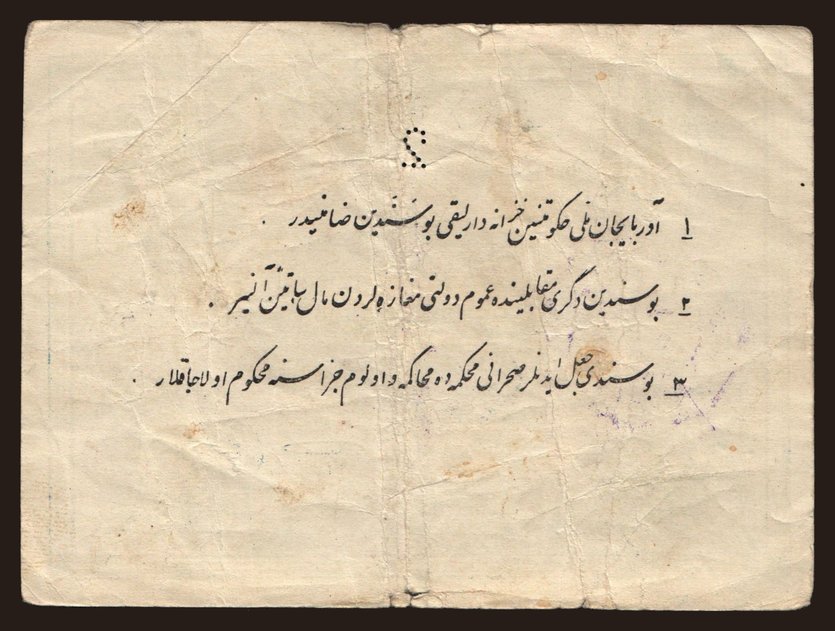 2
۱ آذربایجان ملی حکومتینین خزانه دارلیقی بو سندین ضامنیدر .
۲ بوسندین دگری مقابلینده عموم دولتی مغازه لردن مال ساتین آلنیر .
۳ بو سندی جعل ایدنلر صحرائی محکمه ده محاکمه و اولوم جزاسنه محکوم اولاجاقلار .